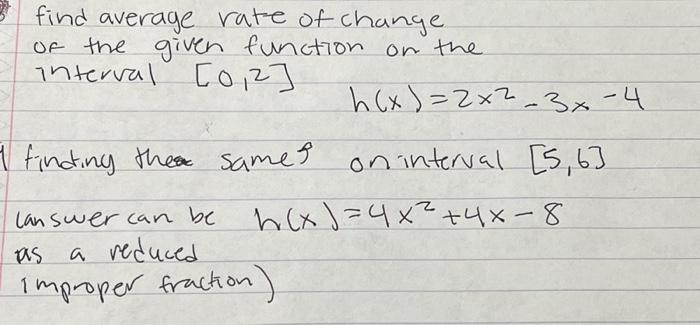 find average rate of change
of the given function on the
interval [0,2]
h(x)=2x²-3x-4
finding the same on interval [5,6]
(answer can be h(x)=4x²+4x-8
as a reduced
improper fraction)